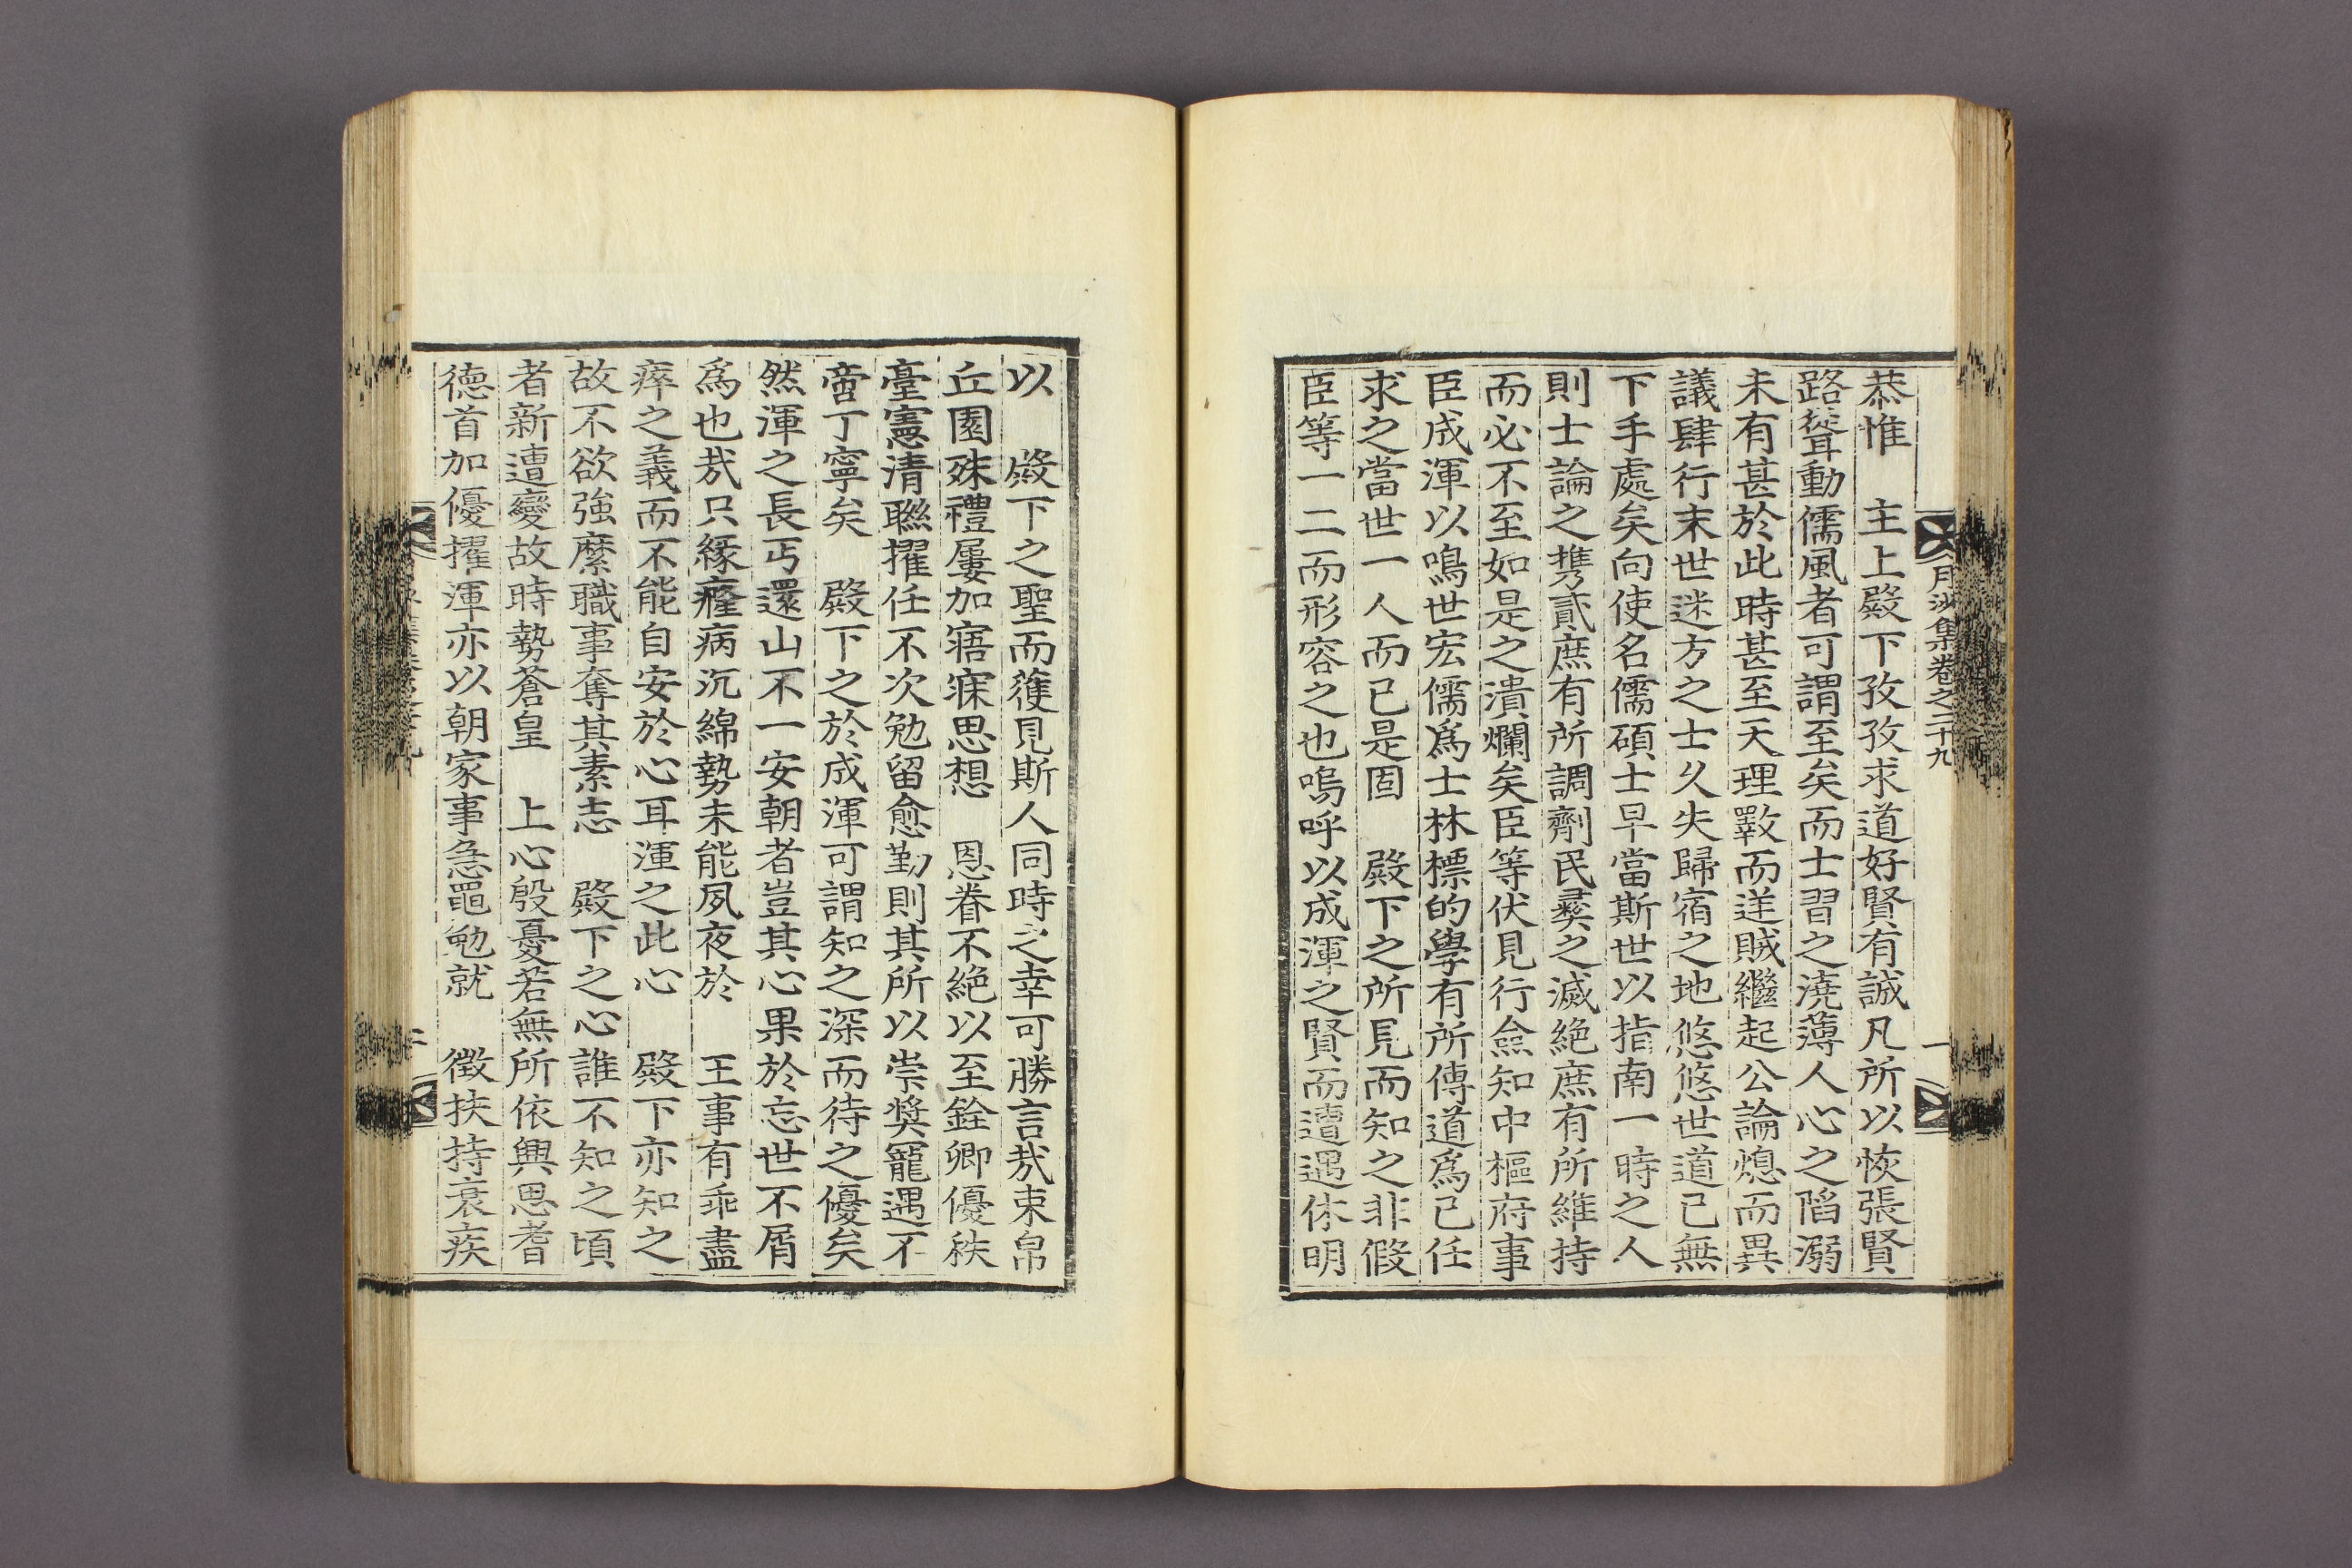 月沙集卷之二十九
一
恭惟 主上殿下孜孜求道好賢有誠凡所以恢張賢
路聳動儒風者可謂至矣而士習之澆薄人心之陷溺
未有甚於此時甚至天理斁而逆賊繼起公論熄而異
議肆行末世迷方之士久失歸宿之地悠悠世道已無
下手處矣向使名儒碩士早當斯世以指南一時之人
則士論之携貳庶有所調劑民彛之滅絶庶有所維持
而必不至如是之潰爛矣臣等伏見行僉知中樞府事
臣成渾以鳴世宏儒爲士林標的學有所傳道爲己任
求之當世一人而已是固 殿下之所見而知之非假
臣等一二而形容之也嗚呼以成渾之賢而遭遇休明
以 殿下之聖而獲見斯人同時之幸可勝言哉束帛
丘園殊禮屢加寤寐思想 恩眷不絶以至銓卿優秩
臺憲清聯擢任不次勉留愈勤則其所以崇奬寵遇不
啻丁寧矣 殿下之於成渾可謂知之深而待之優矣
然渾之長丐還山不一安朝者豈其心果於忘世不屑
爲也哉只緣癃病沉綿勢未能夙夜於 王事有乖盡
瘁之義而不能自安於心耳渾之此心 殿下亦知之
故不欲強縻職事奪其素志 殿下之心誰不知之頃
者新遭變故時勢蒼皇 上心殷憂若無所依輿思耆
德首加優擢渾亦以朝家事急黽勉就 徵扶持衰疾